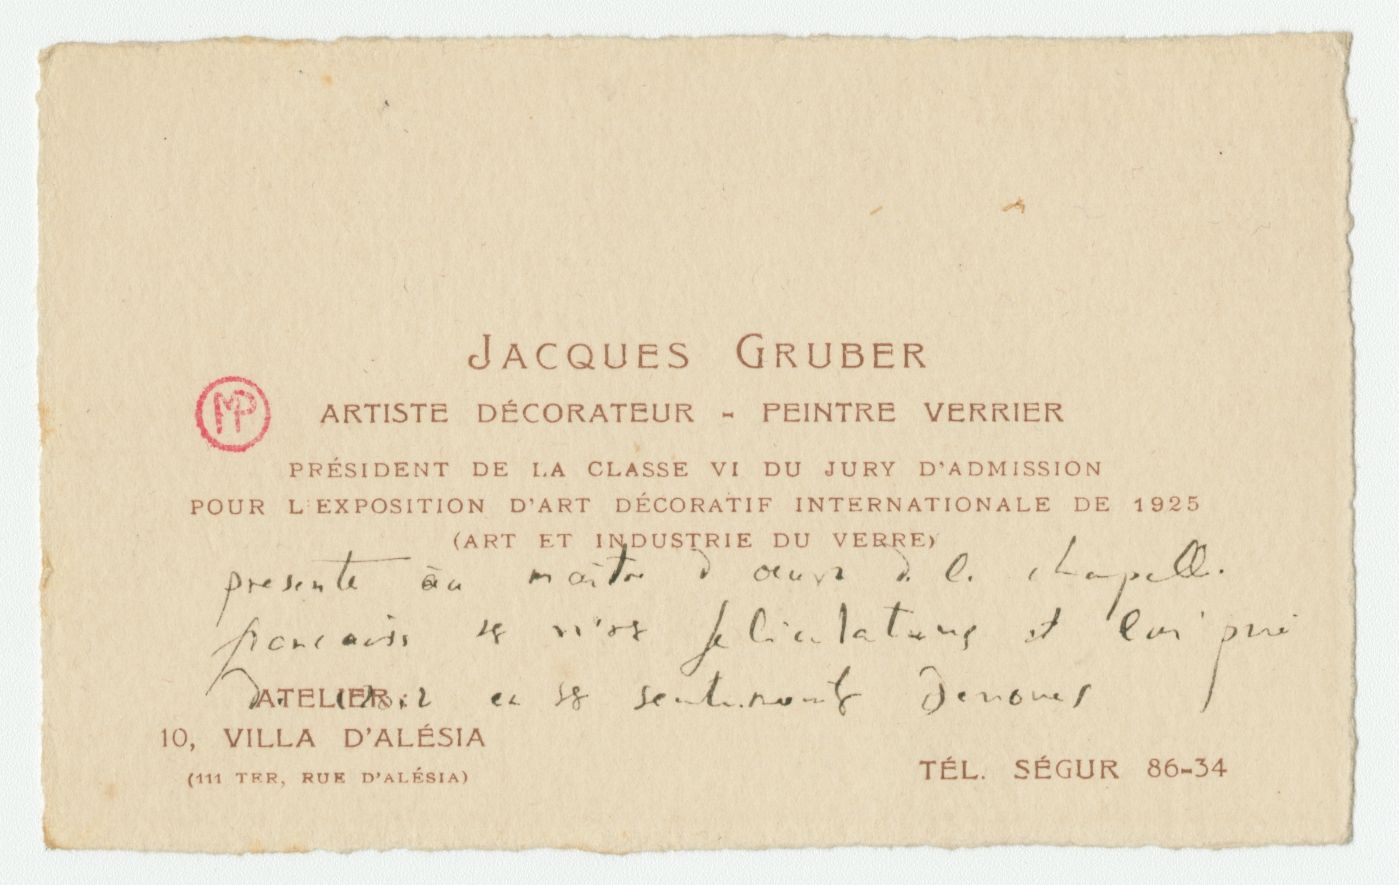 JACQUES GRUBER
MP
ARTISTE DÉCORATEUR - PEINTRE VERRIER
PRÉSIDENT DE LA CLASSE VI DU JURY D'ADMISSION
POUR L'EXPOSITION D'ART DÉCORATIF INTERNATIONALE DE 1925
(ART ET INDUSTRIE DU VERRE)
présente au maître d'œuvre de la chapelle
française ses vives félicitations et lui prie
de croire en ses sentiments dévoués
ATELIER:
10, VILLA D'ALÉSIA
(111 TER, RUE D'ALÉSIA)
TÉL. SÉGUR 86-34